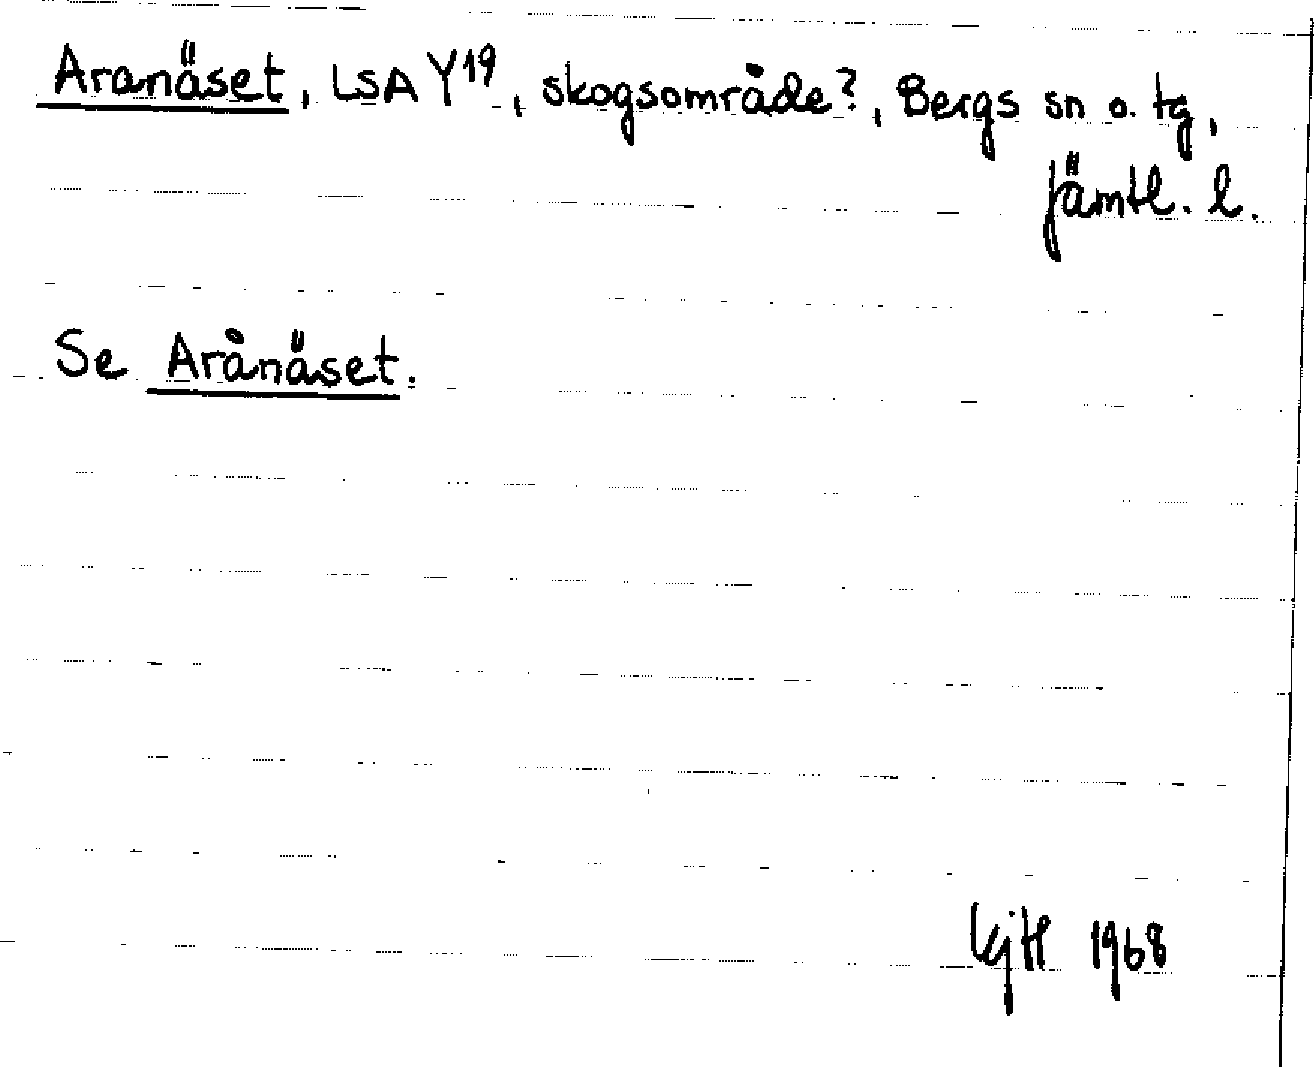 Aranäset, LSA Y19, skogsområde?, Bergs sn o. tg,
Jämtl. l.
Se Arånäset.
1968